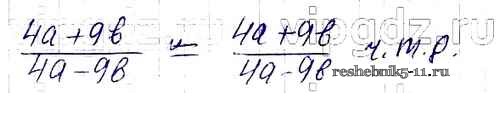 (4a+9в)/(4a-9в) = (4a+9в)/(4a-9в) ч.т.д.
vipgdz.ru
reshebnik5-11.ru